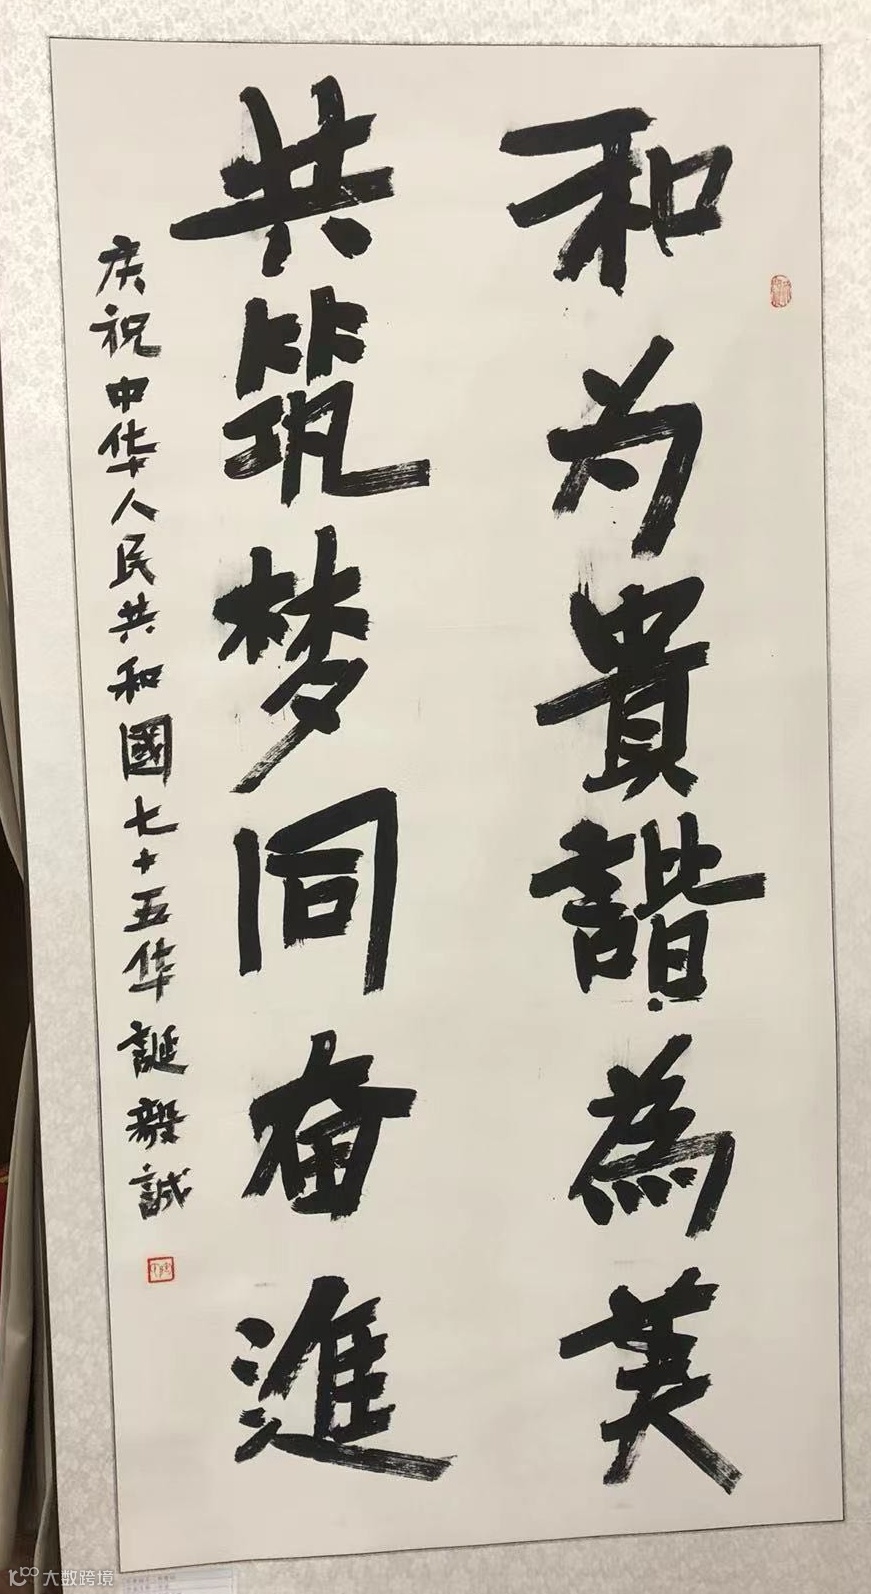 和为貴諧為美
共筑梦同奋進
庆祝中华人民共和國七十五华誕毅誠
大数跨境